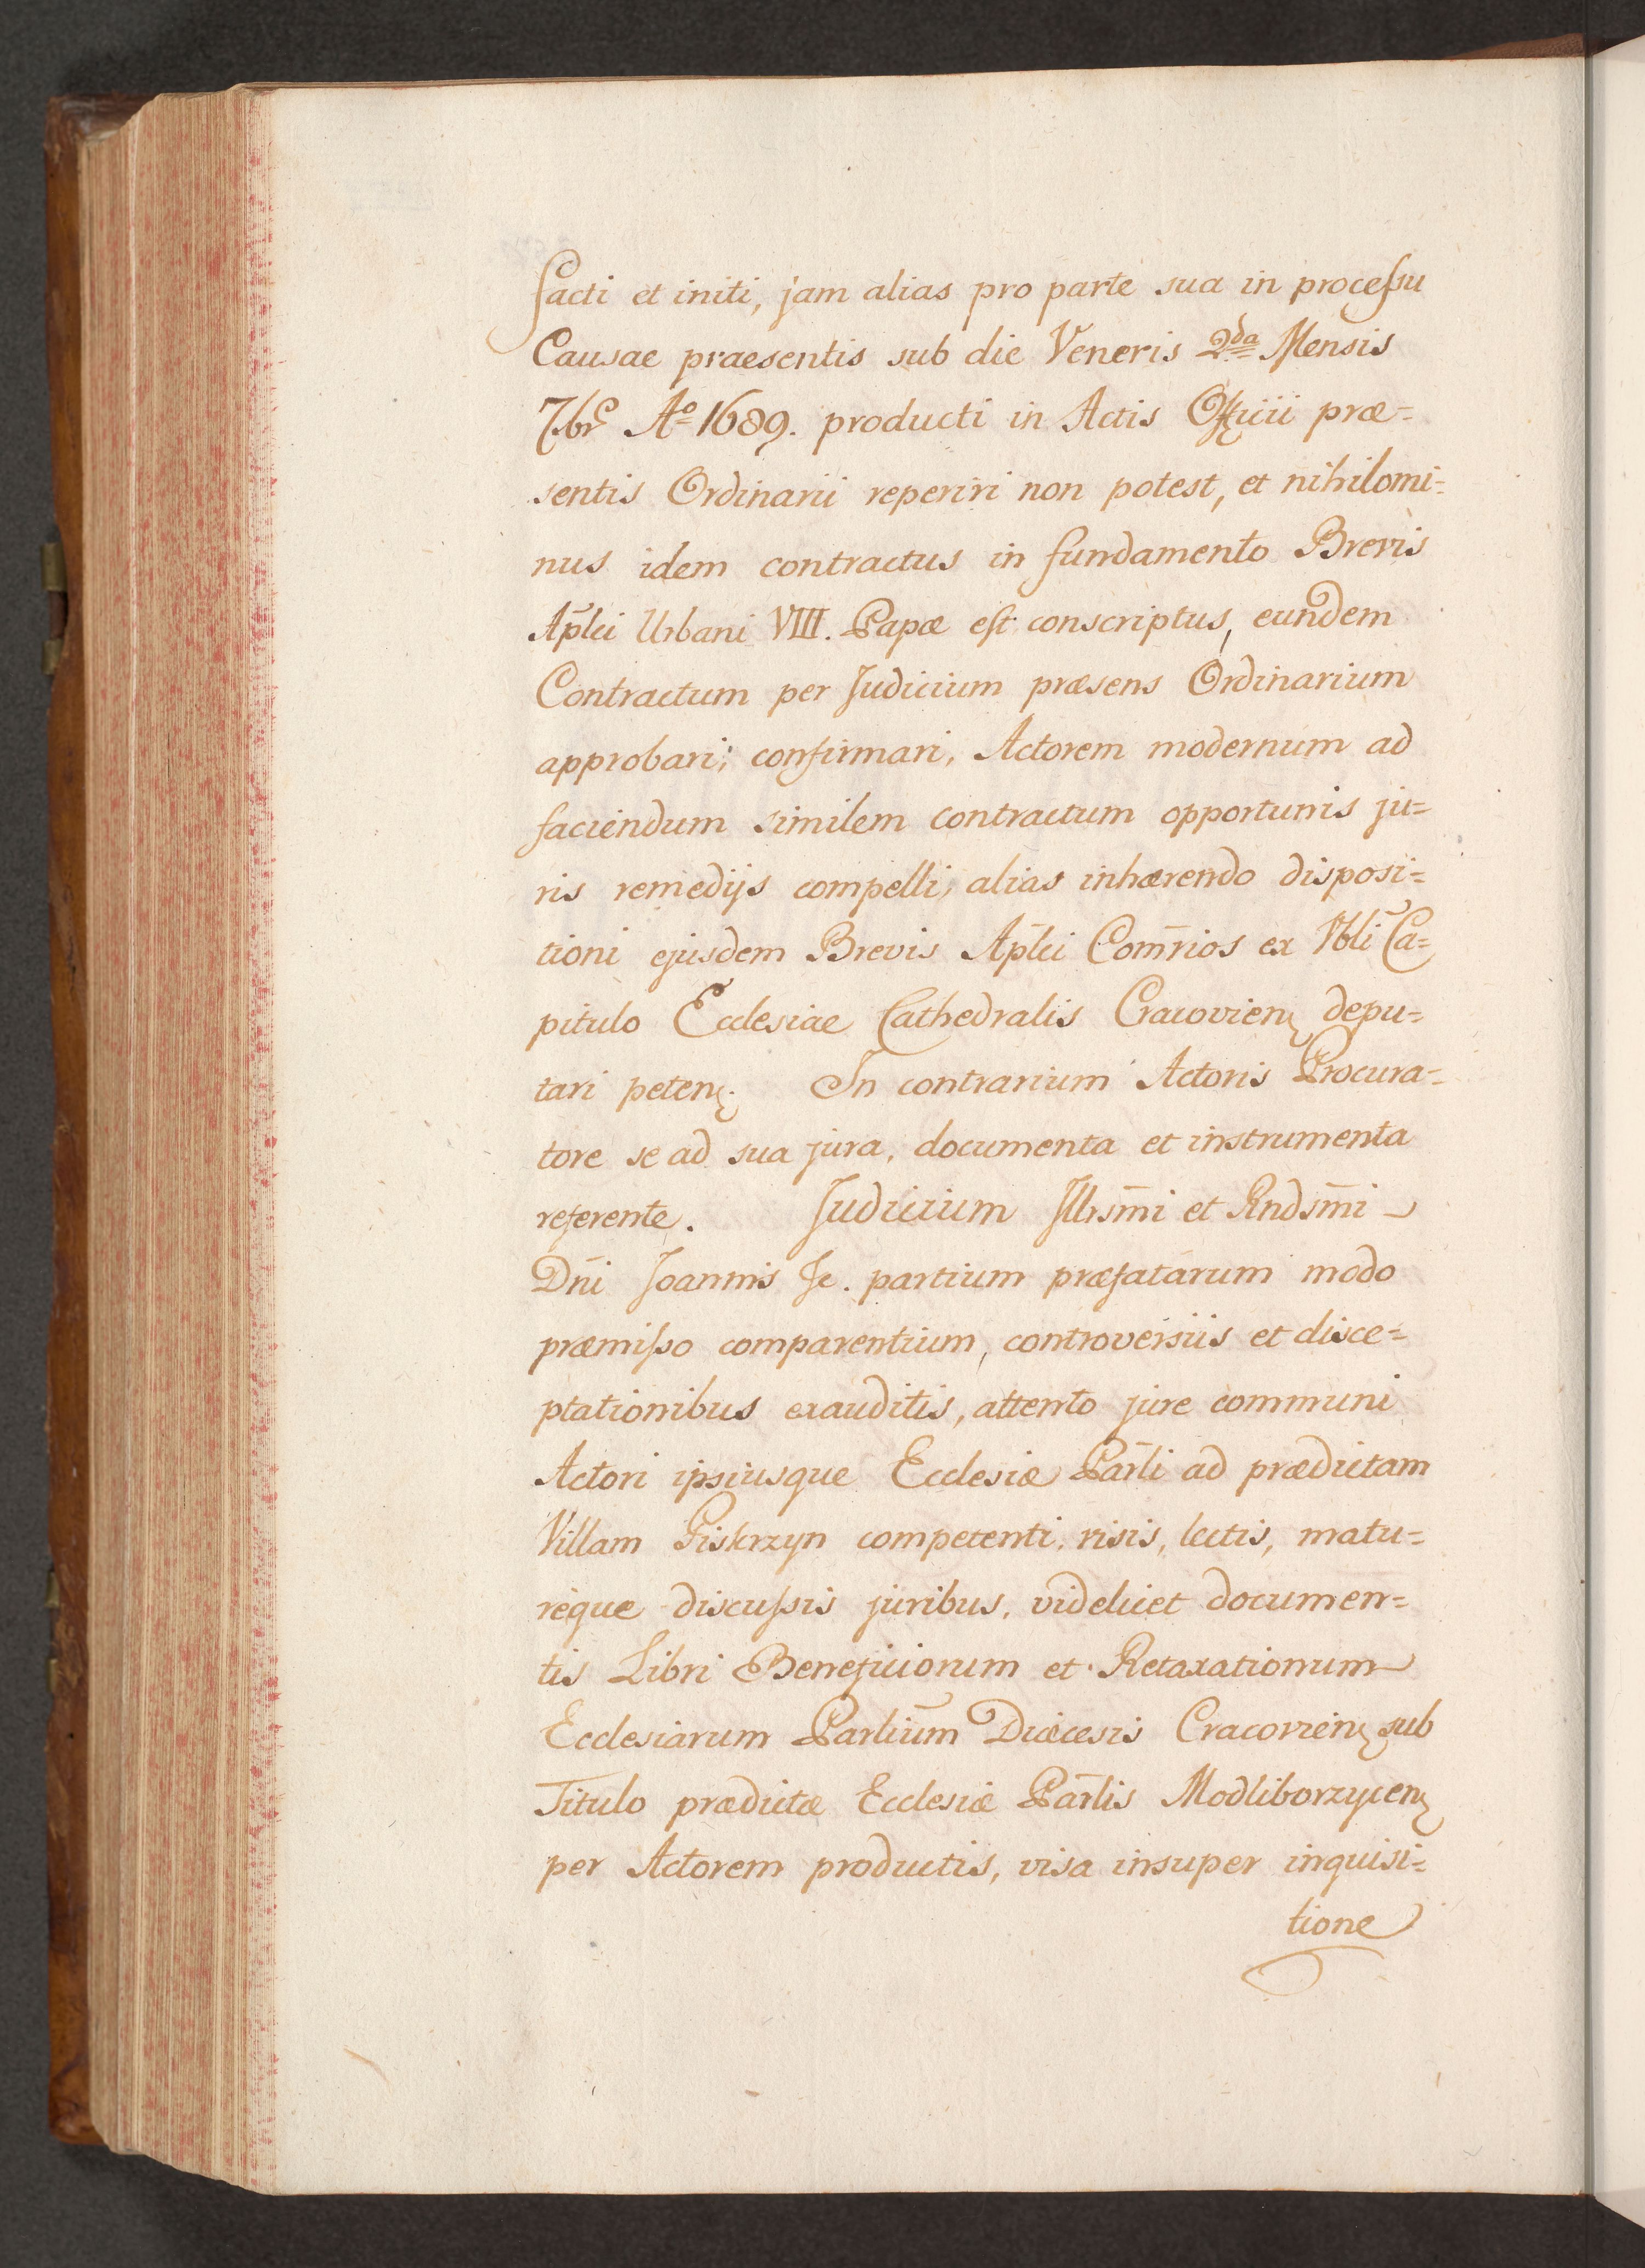 facti et initi, jam alias pro parte sua in processu
Causae praesentis sub die Veneris 2da Mensis
7br̃ Aº 1689. producti in Actis Officii præ=
sentis Ordinarii reperiri non potest, et nihilomi=
nus idem contractus in fundamento Brevis
Ap̃lci Urbani VIII. Papæ est conscriptus, eundem
Contractum per Judicium præsens Ordinarium
approbari; confirmari, Actorem modernum ad
faciendum similem contractum opportunis ju=
ris remedijs compelli, alias inhærendo disposi=
tioni ejusdem Brevis Ap̃lci Com̃rios ex Vbli Ca=
pitulo Ecclesiae Cathedralis Cracovien̨ depu=
tari peten̨. In contrarium Actoris Procura=
tore se ad sua jura, documenta et instrumenta
referente. Judicium Illrsm̃i et Rndsm̃i
Dñi Joannis &c. partium præfatarum modo
præmisso comparentium, controversiis et disce=
ptationibus exauditis, attento jure communi
Actori ipsiusque Ecclesiæ Par̃li ad prædictam
Villam Piskrzyn competenti, visis, lectis, matu=
rèque discussis juribus, videlicet documen=
tis Libri Beneficiorum et Retaxationum
Ecclesiarum Parliũm Diæcesis Cracovien̨ sub
Titulo prædictæ Ecclesiæ Par̃lis Modliborzycen̨
per Actorem productis, visa insuper inquisi=
tione